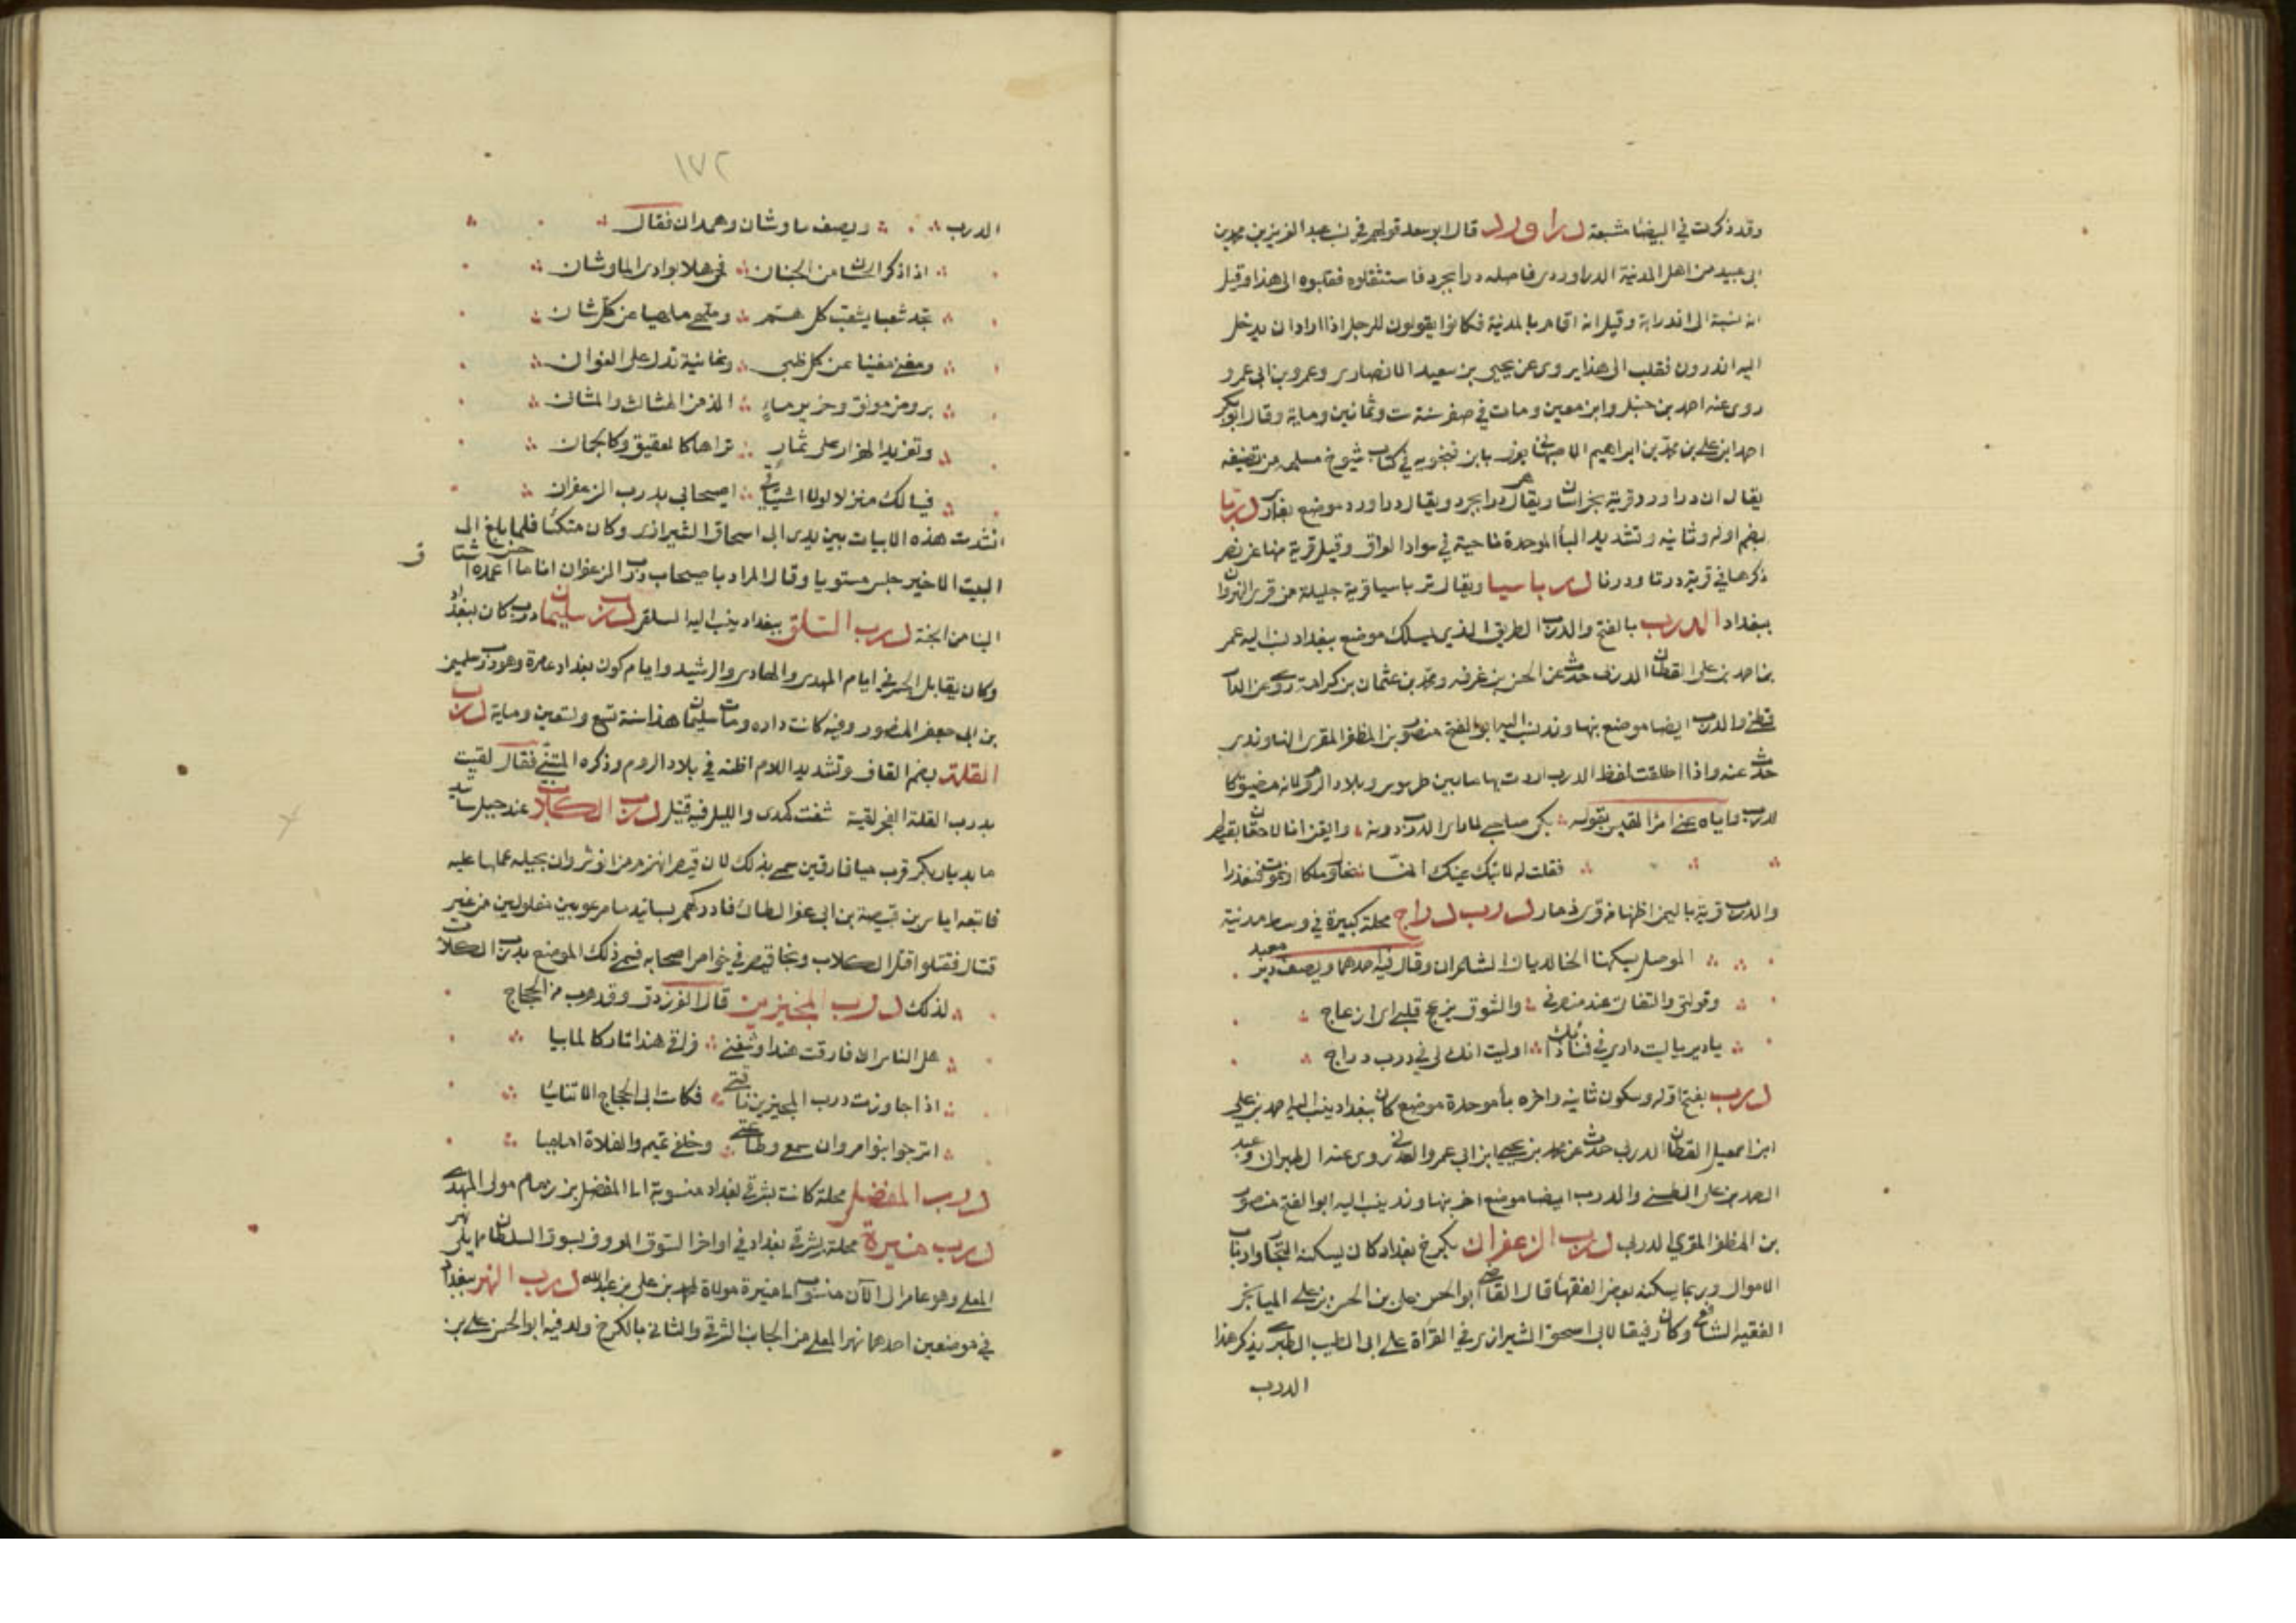 وقد ذكرت في البيضا شبعة دراورد قال ابو سعد قولهم في نسب عبد العزيز بن محمد بن
ابى عبيد من اهل المدنية الدراوردى فاصله درابجرد فاستثقلوه فقلبوه الى هذا وقيل
انه نسبة الى اندرابة وقيل انه اقام بالمدنية فكانوا يقولون للرجل اذا اراد ان يدخل
اليه اندرون فقلب الى هذا يروى عن يحيى بن سعيد الانصارى وعمرو بن ابى عمرو
روى عنه احمد بن حنبل وابن معين ومات في صفر سنة ست وثمانين وماية وقال ابو بكر
احمد ابن على بن محمد بن ابراهيم الاصبهانى يعرف بابن فنجويه في كتاب شيوخ مسلم من تصنيفه
يقال ان دراورد قرية بخراسان ويقال هى درابجرد ويقال دراورد موضع بفارس درتا
بضم اوله وثانيه وتشديد البأ الموحدة ناحية في سواد العراق وقيل قرية منها عن نصر
ذكرها في قرية درتا ودرنا درباسيا ويقال ترباسيا قرية جليلة من قرى النهروان
ببغداد الدرب بالفتح والدرب الطريق الذى يسلك موضع ببغداد نسب اليه عمر
بن احمد بن على القطان الدربى حدث عن الحسن بن عرفه ومحمد بن عثمان بن كرامة روى عنه الدار
قطنى والدرب ايضا موضع بنهاوند نسب اليه ابو الفتح منصور بن المظفر المقرى النهاوندى
حدث عنه واذا اطلقت لفظ الدرب اردت بها ما بين طرسوس وبلاد الروم لانه مضيق كا
لدرب واياه عنى امرأ القيس بقوله بكى صاحبى لما راى الدرب دونه وايقن انا لاحقان بقيصر
فقلت له لا تبك عينك انما نحاول ملكا او نموت فنعذرا
والدرب قرية باليمن اظنها من قرى ذمار درب دراج محلة كبيرة في وسط مدنية
الموصل يسكنها الخالديان الشاعران وقال فيه احدهما ويصف دير معبد
وقولتى والتفاتى عند منصرفى والشوق يزعج قلبى اى ازعاج
يادير يا ليت دارى في فنائك ذا اوليت انك لى في درب دراج
درب بفتح اوله وسكون ثانيه واخره بأ موحدة موضع كان ببغداد ينسب اليه احمد بن على
ابن اسمعيل القطان الدربى حدث عن محمد بن يحيى ابن ابى عمرو العدنى روى عنه الطبرانى وعبد
الصمد بن على الطستى والدرب ايضا موضع اخر بنهاوند ينسب اليه ابو الفتح منصور
بن المظفر المقرى الدربى درب الزعفران بكرخ بغداد كان يسكنه التجار وارباب
الاموال وربما يسكنه بعض الفقهأ قال القاضى ابو الحسن على بن الحسن بن على الميانجى
الفقيه الشافعى وكان رفيقا لابى اسحق الشيرازى في القرأة على ابى الطيب الطبرى يذكر هذا
الدرب
١٧٢
الدرب ويصف ماوشان وهمدان فقال
اذا ذكر الحسان من الجنان فحى هلا بوادى الماوشان
تجد شعبا يشعب كل هم وملهى ملهيا عن كل شان
ومغنى مغنيا عن كل ظبى وغانية تدل على الغوان
بروض مونق وخرير ماء الذ من المثالث والمثان
وتغريد الهزار على ثمار تراها كالعقيق وكالجمان
فيا لك منزلا لولا اشتياقى اصيحابى بدرب الزعفران
انشدت هذه الابيات بين يدى ابى اسحاق الشيرازى وكان متكئا فلما بلغ الى
البيت الاخير جلس مستويا وقال المراد باصيحاب درب الزعفران انا ما اعمده اشتاق
الينا من الجنة درب السلق ببغداد ينسب اليه السلقى درب سليمان درب كان ببغداد
وكان يقابل الجسر في ايام المهدى والهادى والرشيد وايام كون بغداد عامرة وهو درب سليمن
بن ابى جعفر المنصور وفيه كانت داره ومات سليمان هذا سنة تسع وتسعين وماية درب
القلة بضم القاف وتشديد اللام اظنه في بلاد الروم وذكره المتنبى فقال لقيت
بدرب القلة الفجر لقية شفت كمدى والليل فيه قتيل درب الكلاب عند جبل ساتيد
ما بديار بكر قرب ميافارقين سمى بذلك لان قيصر انهزم من انوشروان بحيلة عملها عليه
فاتبعه اياس بن قبيصة بن ابى عفر الطائى فادركهم بساتيدما مرعوبين مغلولين من غير
قتال فقتلوا قتل الكلاب ونجا قيصر في خواص اصحابه فسمى ذلك الموضع بدرب الكلاب
لذلك درب المجيزين قال الفرزدق وقد هرب من الحجاج
هل الناس ان فارقت هندا وشفنى فراقى هندا تاركا لما بيا
اذا جاوزت درب المجيزين ناقتى فكاست ابى الحجاج الا تنائيا
اترجوا بنوا مروان سمعى وطاعتى وخلفى تميم والفلاة امامييا
درب المفضل محلة كانت بشرقى بغداد منسوبة الى المفضل بن زمام مولى المهدى
درب منيرة محلة بشرقى بغداد في اواخر السوق المعروف بسوق السلطان مما يلى نهر
المعلى وهو عامر الى الآن منسوب الى منيرة مولاة لمحمد بن على بن عبد الله درب النهر ببغداد
في موضعين احدهما نهر المعلى من الجانب الشرقى والثانى بالكرخ ولد فيه ابو الحسن على بن